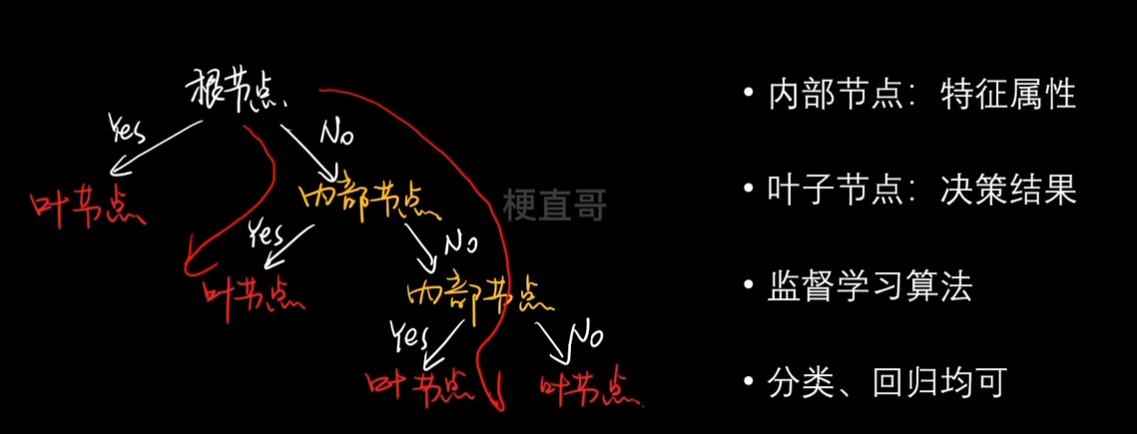 根节点
Yes
No
叶节点
内部节点
Yes
No
叶节点
内部节点
Yes
No
叶节点
叶节点
梗直哥
• 内部节点：特征属性
• 叶子节点：决策结果
• 监督学习算法
• 分类、回归均可